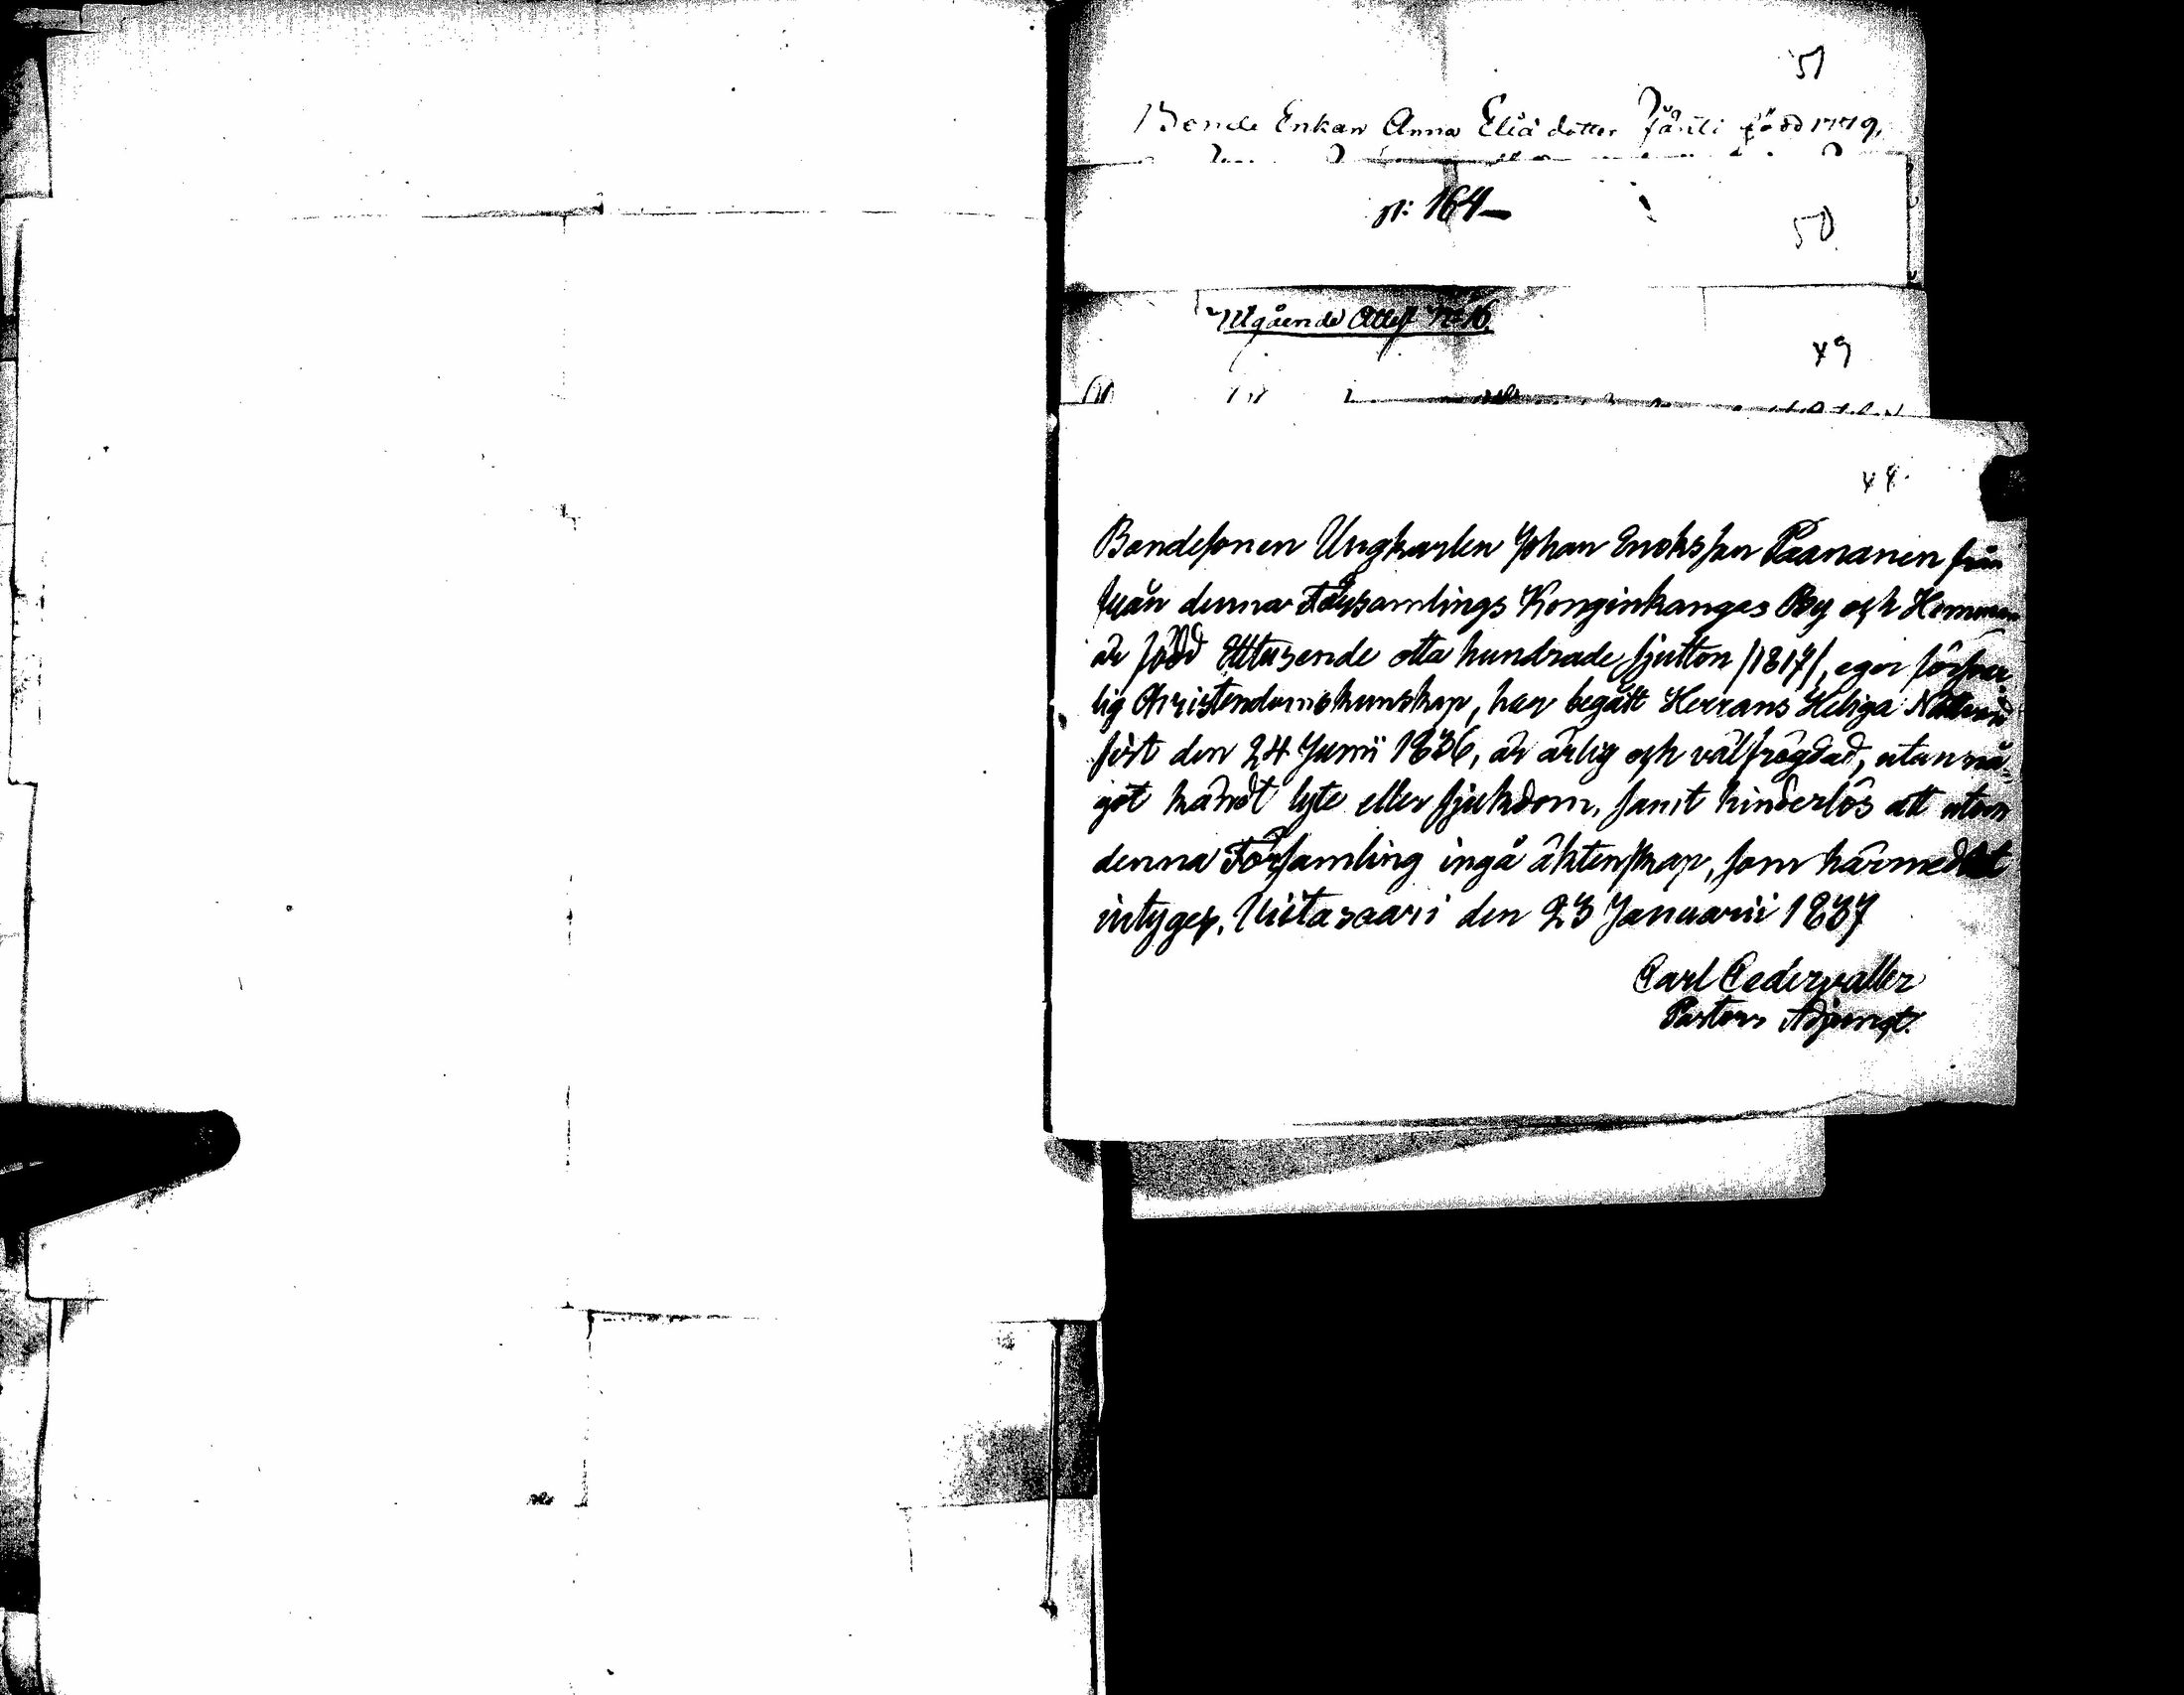 51
Bonde Enkan Anna Eliä dotter född 1779,
N: 164
50
Utgående Attest No 16
49
48.
Bondesonen Ungkarlen Johan Enoksson Paananen från
från denna Församlings Konginkangas By och Hemman
är född Ettusende otta hundrade sjutton /1817/, eger försvar-
lig Christendomskunskap, har begått Herrans Heliga Nattvard
sist den 24 Junii 1836, är ärlig och välfrägdad, utan nå-
got kändt lyte eller sjukdom, samt hinderlös att utom
denna Församling ingå äktenskap, som härmedelst
intyges. Viitasaari den 23 Januarii 1837
Carl Cedervaller
Pastors Adjunct.